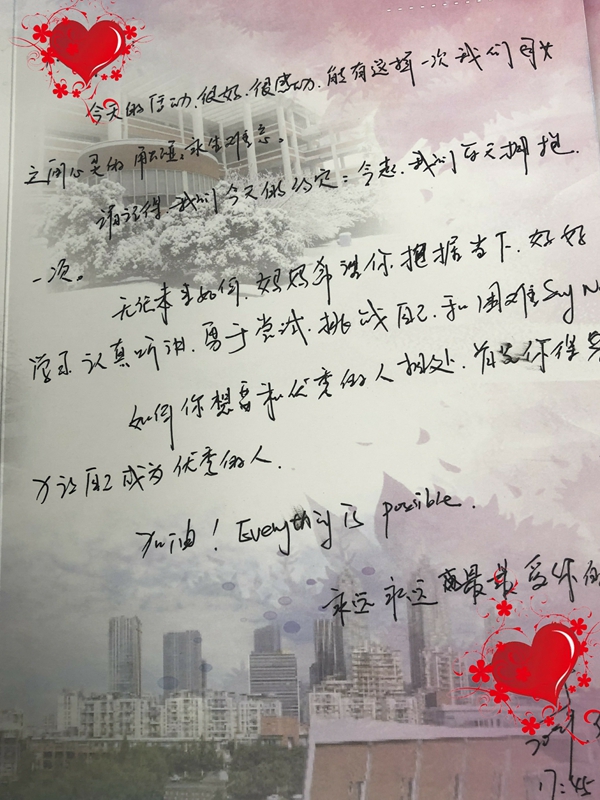 今天的活动,很好,很感动,能有这样一次我们母女
之间心灵的触碰,永生难忘。
请记得,我们今天的约定:今起,我们每天拥抱
一次。
无论未来如何,妈妈希望你把握当下,好好
学习认真听讲,勇于尝试,挑战自己,和困难Say N
如何你想要和优秀的人相处,首先你得
让自己成为优秀的人.
加油! Everything is possible.
永远永远最最爱你的
17:45